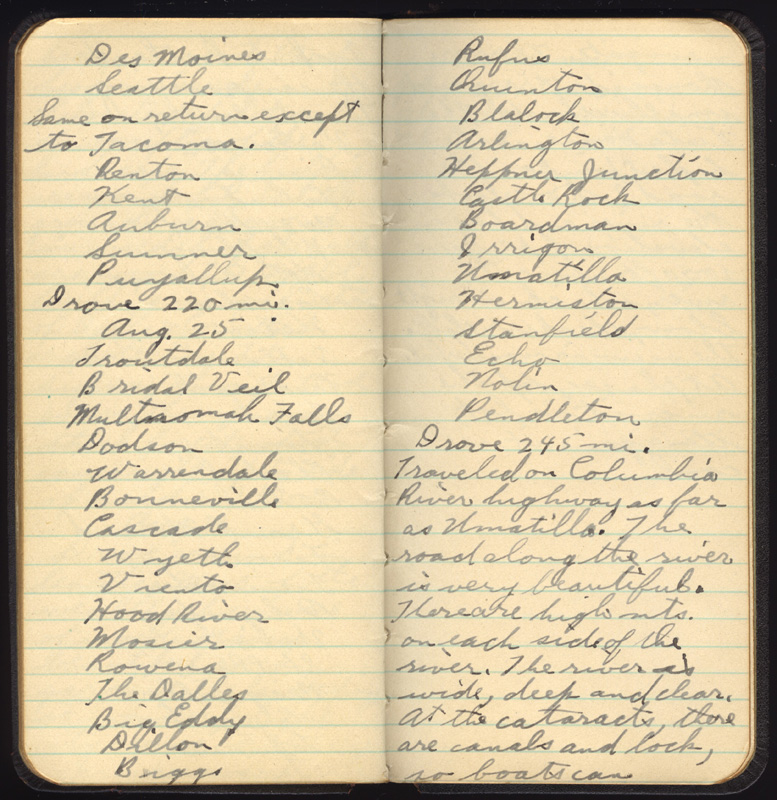 Des Moines
Seattle
Same on return except
to Tacoma.
Renton
Kent
Auburn
Sumner
Puyallup
Drove 220 mi.
Aug. 25
Troutdale
Bridal Veil
Multnomah Falls
Dodson
Warrendale
Bonneville
Cascade
Wyeth
Viento
Hood River
Mosier
Rowena
The Dalles
Big Eddy
Dillon
Briggs
Rufus
Quinton
Blalock
Arlington
Heppner Junction
Castle Rock
Boardman
Irrigon
Umatilla
Hermiston
Stanfield
Echo
Nolin
Pendleton
Drove 245 mi.
Traveled on Columbia
River highway as far
as Umatilla. The
road along the river
is very beautiful.
There are high mts.
on each side of the
river. The river is
wide, deep and clear.
At the cataracts, there
are canals and lock,
so boats can